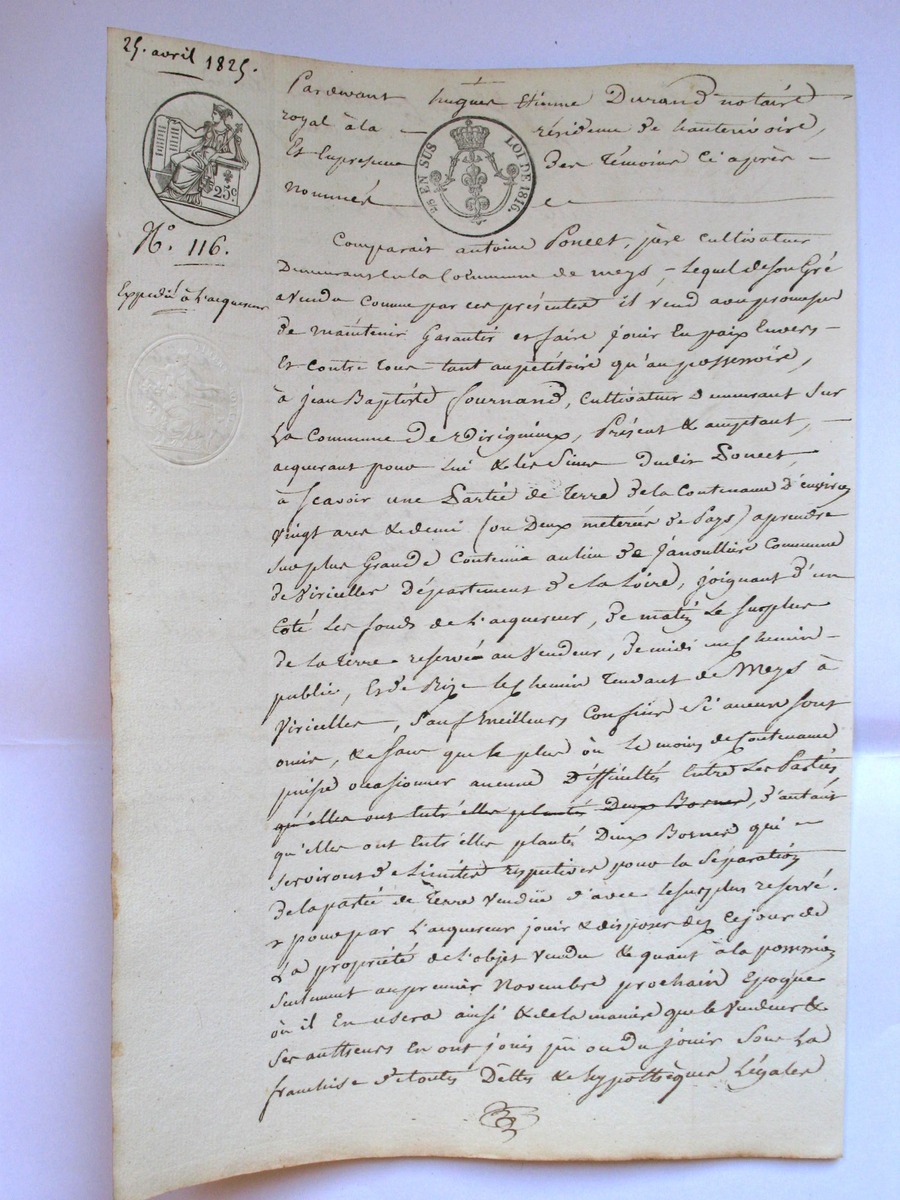 25. avril 1825.
25c
2/5 EN SUS LOI DE 1816.
N.° 116.
Expédié à L'acquereur
Pardevant hugues Etienne Durand notaire
royal à la résidence de hauterivoire,
Et Enpresence des Témoins Ci après
nommés
Comparait antoine Poncet, père Cultivateur
Demeurant en la Commune de meys, Lequel de son Gré
a vendu Comme par ces présentes il vend avec promesse
de maintenir Garantir et faire Jouir En paix Envers
Et Contre tous tant au pétitoire qu'au possessoire,
à jean Baptiste fournand, Cultivateur Demeurant Sur
La Commune De Virigneux, Présent & acceptant,
acquerant pour Lui & les Siens dudit Poncet,
à Scavoir une Partie de Terre De la Contenance D'environ
vingt ares & demi (ou Deux meterées de Pays) aprendre
Sur plus Grande Contenüe au lieu de Janoullière Commune
de Viricelles Département de la Loire, joignant d'un
Coté Les fonds de L'acquereur, De matin Le Surplus
De la Terre reservée au Vendeur, De midi un Chemin
public, Et de Bize le Chemin Tendant de Meys à
Viricelles, Sauf meilleurs Confins Si aucuns Sont
omis, & sans que le plus où Le moins de Contenance
puisse ocasionner aucunne Difficultés Entre Les Parties
qu'elles ont Entr'elles planté Deux Bornes, d'autant
qu'elles ont Entr'elles planté Deux Bornes qui
Serviront de Limites respectives pour La Séparation
De la partie de Terre Vendüe d'avec le surplus reservé.
pour par L'acquereur jouir & disposer dès Ce jour de
La propriété de L'objet Vendu & quant à la possession
Seulement au premier Novembre prochain Epoque
où il En usera ainsi & de la manière que le Vendeur &
Ses autheurs En ont jouis pû ou du jouir Sous La
franchise De toutes Dettes & hypothèques Légales